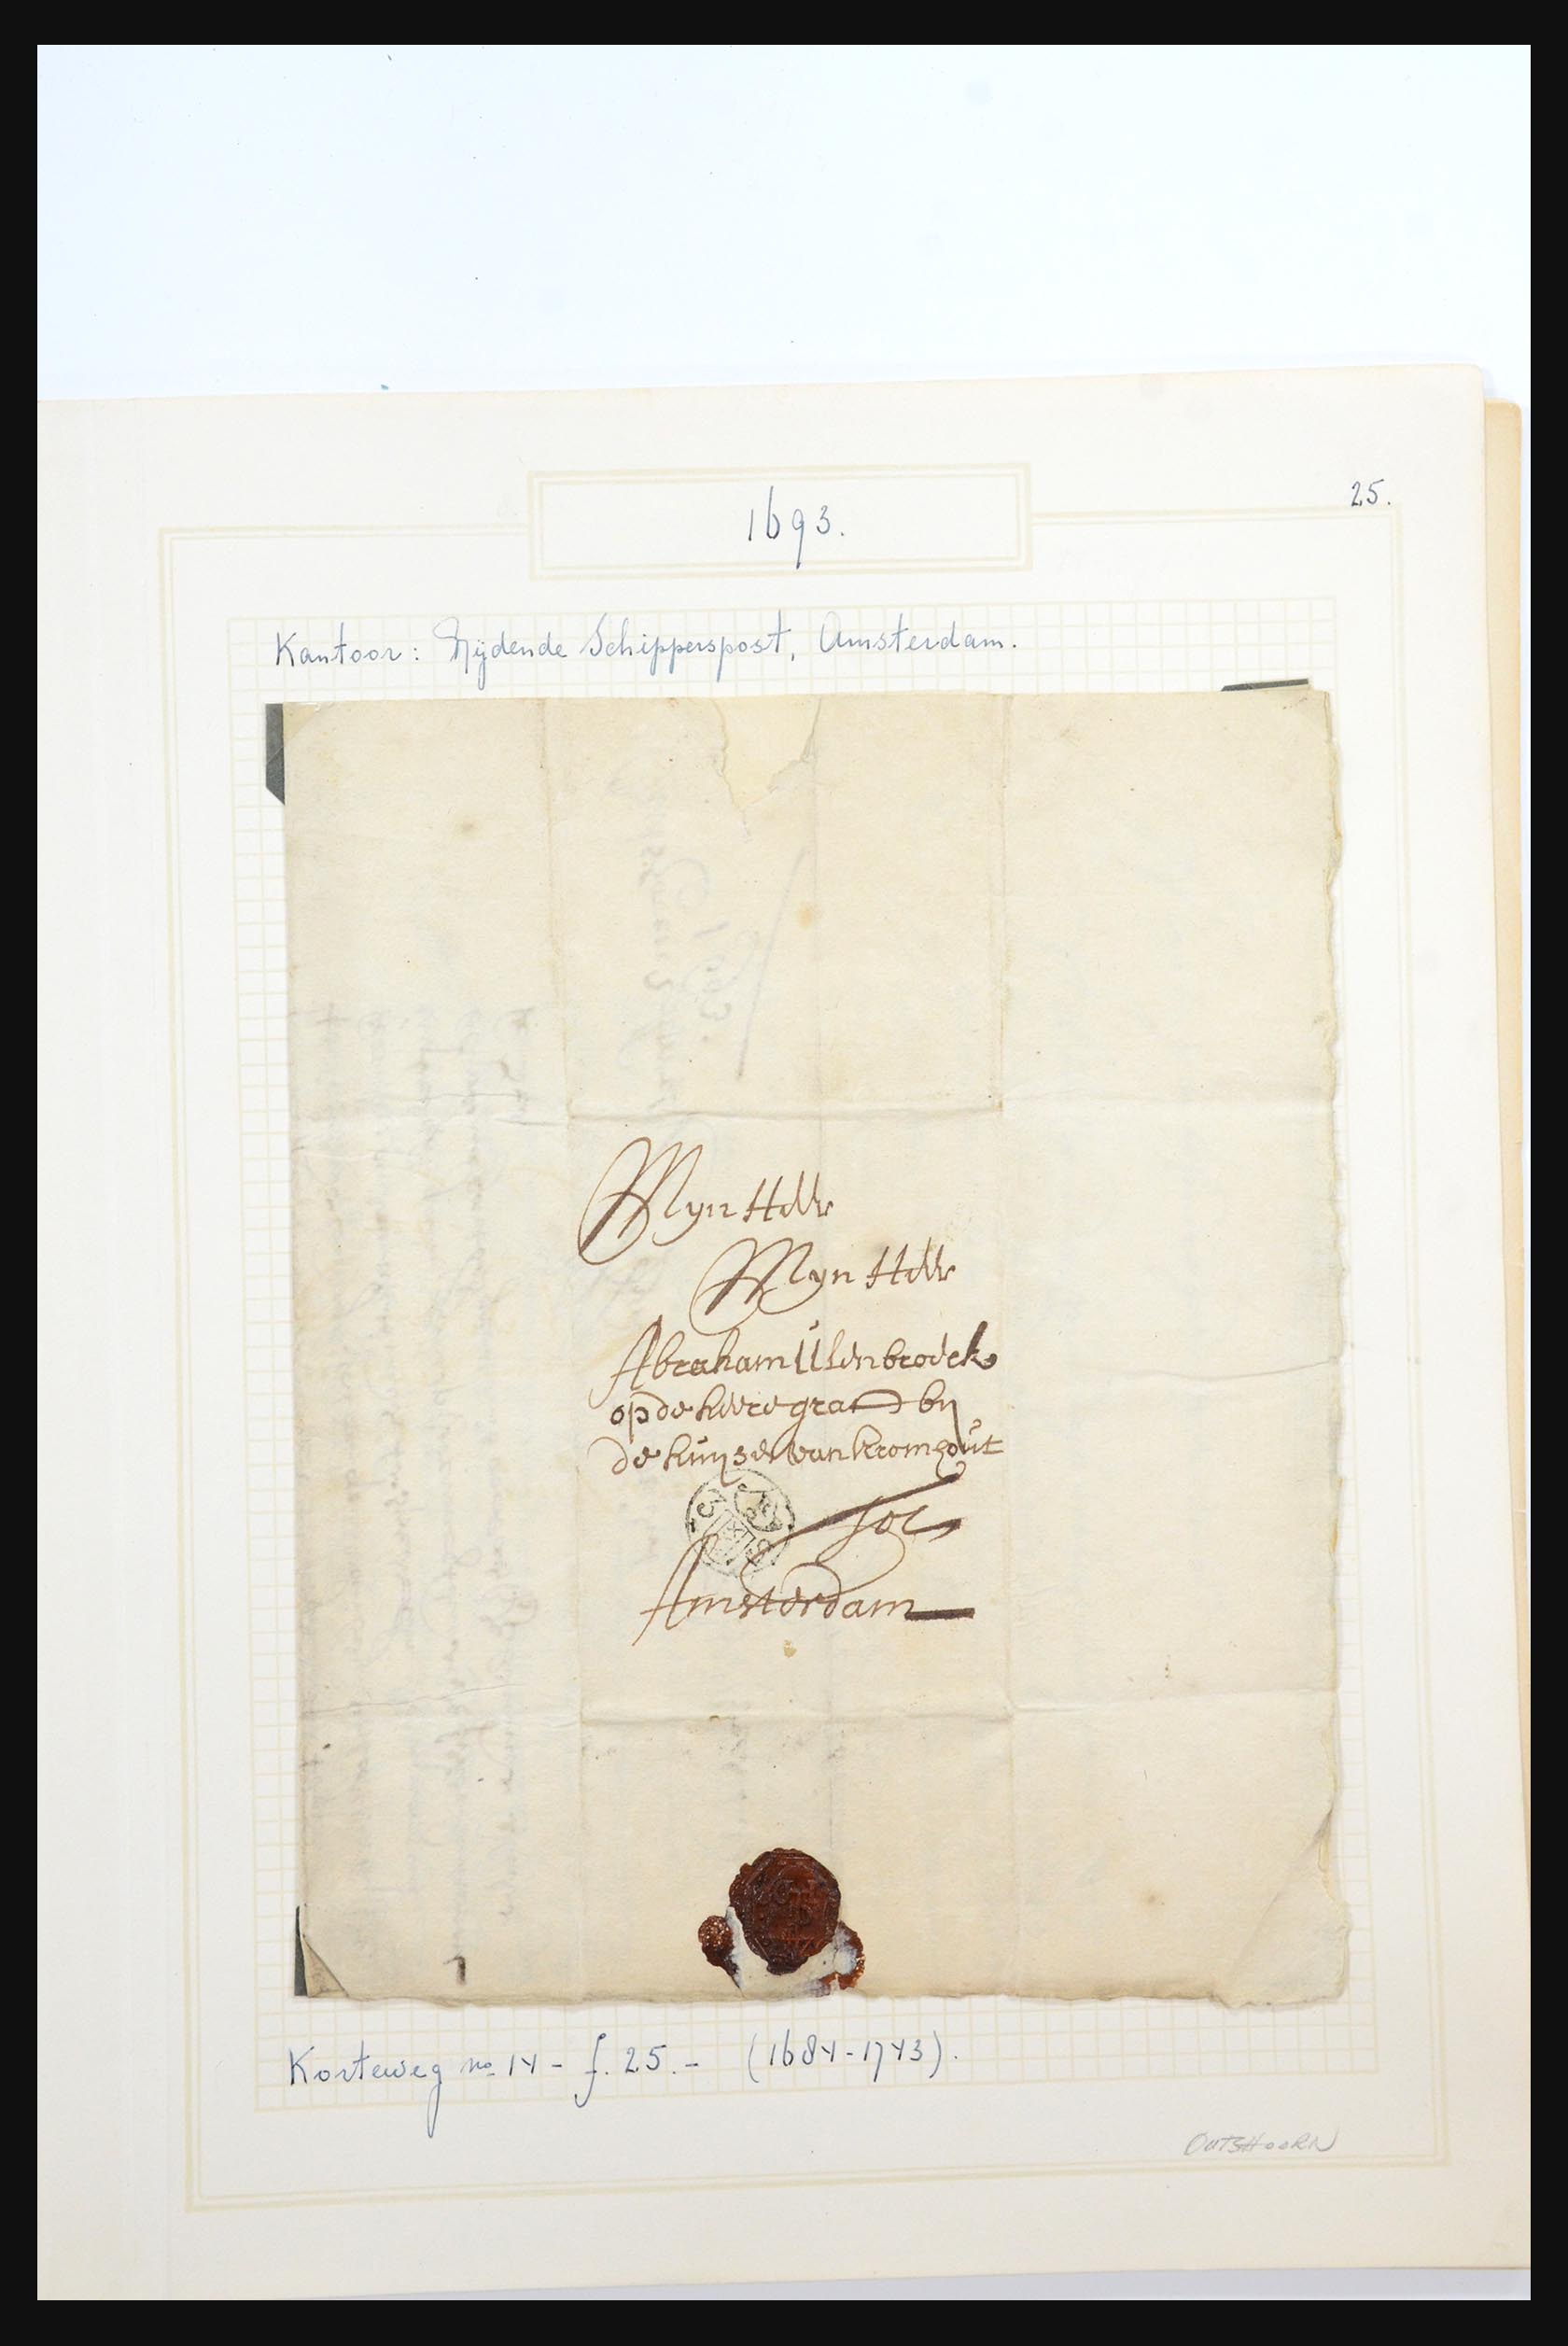 25.
1693.
Kantoor: Rijdende Schipperspost, Amsterdam.
Myn Heer
Myn Heer
Abraham Ulenbroeck
op de heere graft by
de huijsen van kromhout
tot
Amsterdam
3 S
Korteweg no 14 - f. 25.- (1684-1743).
OUTSHOORN